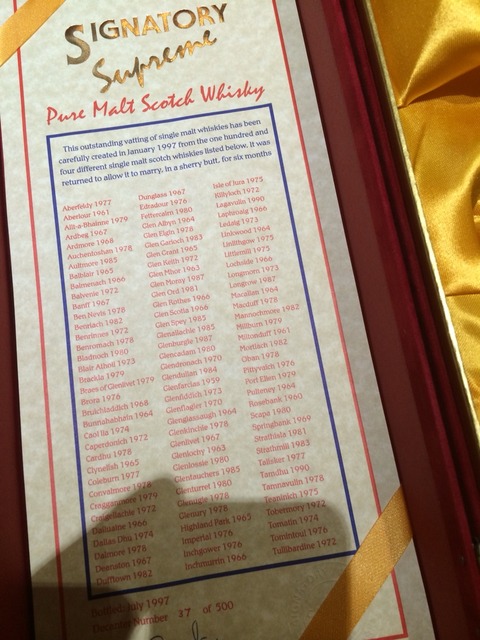 SIGNATORY
Supreme
Pure Malt Scotch Whisky
This outstanding vatting of single malt whiskies has been
carefully created in January 1997 from the one hundred and
four different single malt scotch whiskies listed below. It was
returned to allow it to marry, in a sherry butt, for six months
Aberfeldy 1977
Aberlour 1961
Allt-a-Bhainne 1979
Ardbeg 1967
Ardmore 1968
Auchentoshan 1978
Aultmore 1985
Balblair 1965
Balmenach 1966
Balvenie 1972
Banff 1967
Ben Nevis 1978
Benriach 1982
Benrinnes 1972
Benromach 1978
Bladnoch 1980
Blair Athol 1973
Brackla 1979
Braes of Glenlivet 1979
Brora 1976
Bruichladdich 1968
Bunnahabhain 1964
Caol Ila 1974
Caperdonich 1972
Cardhu 1978
Clynelish 1965
Coleburn 1977
Convalmore 1978
Cragganmore 1979
Craigellachie 1972
Dailuaine 1966
Dallas Dhu 1974
Dalmore 1978
Deanston 1967
Dufftown 1982
Dunglass 1967
Edradour 1976
Fettercairn 1980
Glen Albyn 1964
Glen Elgin 1978
Glen Garioch 1983
Glen Grant 1965
Glen Keith 1972
Glen Mhor 1963
Glen Moray 1987
Glen Ord 1981
Glen Rothes 1966
Glen Scotia 1966
Glen Spey 1985
Glenallachie 1985
Glenburgie 1987
Glencadam 1980
Glendronach 1970
Glendullan 1984
Glenfarclas 1959
Glenfiddich 1973
Glenfingler 1970
Glenglassaugh 1964
Glenkinchie 1978
Glenlivet 1967
Glenlochy 1963
Glenlossie 1980
Glentauchers 1985
Glenturret 1980
Glenugie 1978
Glenury 1978
Highland Park 1965
Imperial 1976
Inchgower 1976
Inchmurrin 1966
Isle of Jura 1975
Killyloch 1972
Lagavulin 1990
Laphroaig 1966
Ledaig 1973
Linkwood 1964
Linlithgow 1975
Littlemill 1975
Lochside 1966
Longmorn 1973
Longrow 1987
Macallan 1964
Macduff 1978
Mannochmore 1982
Millburn 1979
Miltonduff 1961
Mortlach 1982
Oban 1978
Pittyvaich 1976
Port Ellen 1979
Pulteney 1964
Rosebank 1960
Scapa 1980
Springbank 1969
Strathisla 1981
Strathmill 1983
Talisker 1977
Tamdhu 1990
Tamnavulin 1978
Teaninich 1975
Tobermory 1972
Tomatin 1974
Tomintoul 1976
Tullibardine 1972
Bottled: July 1997
Decanter Number 37 of 500